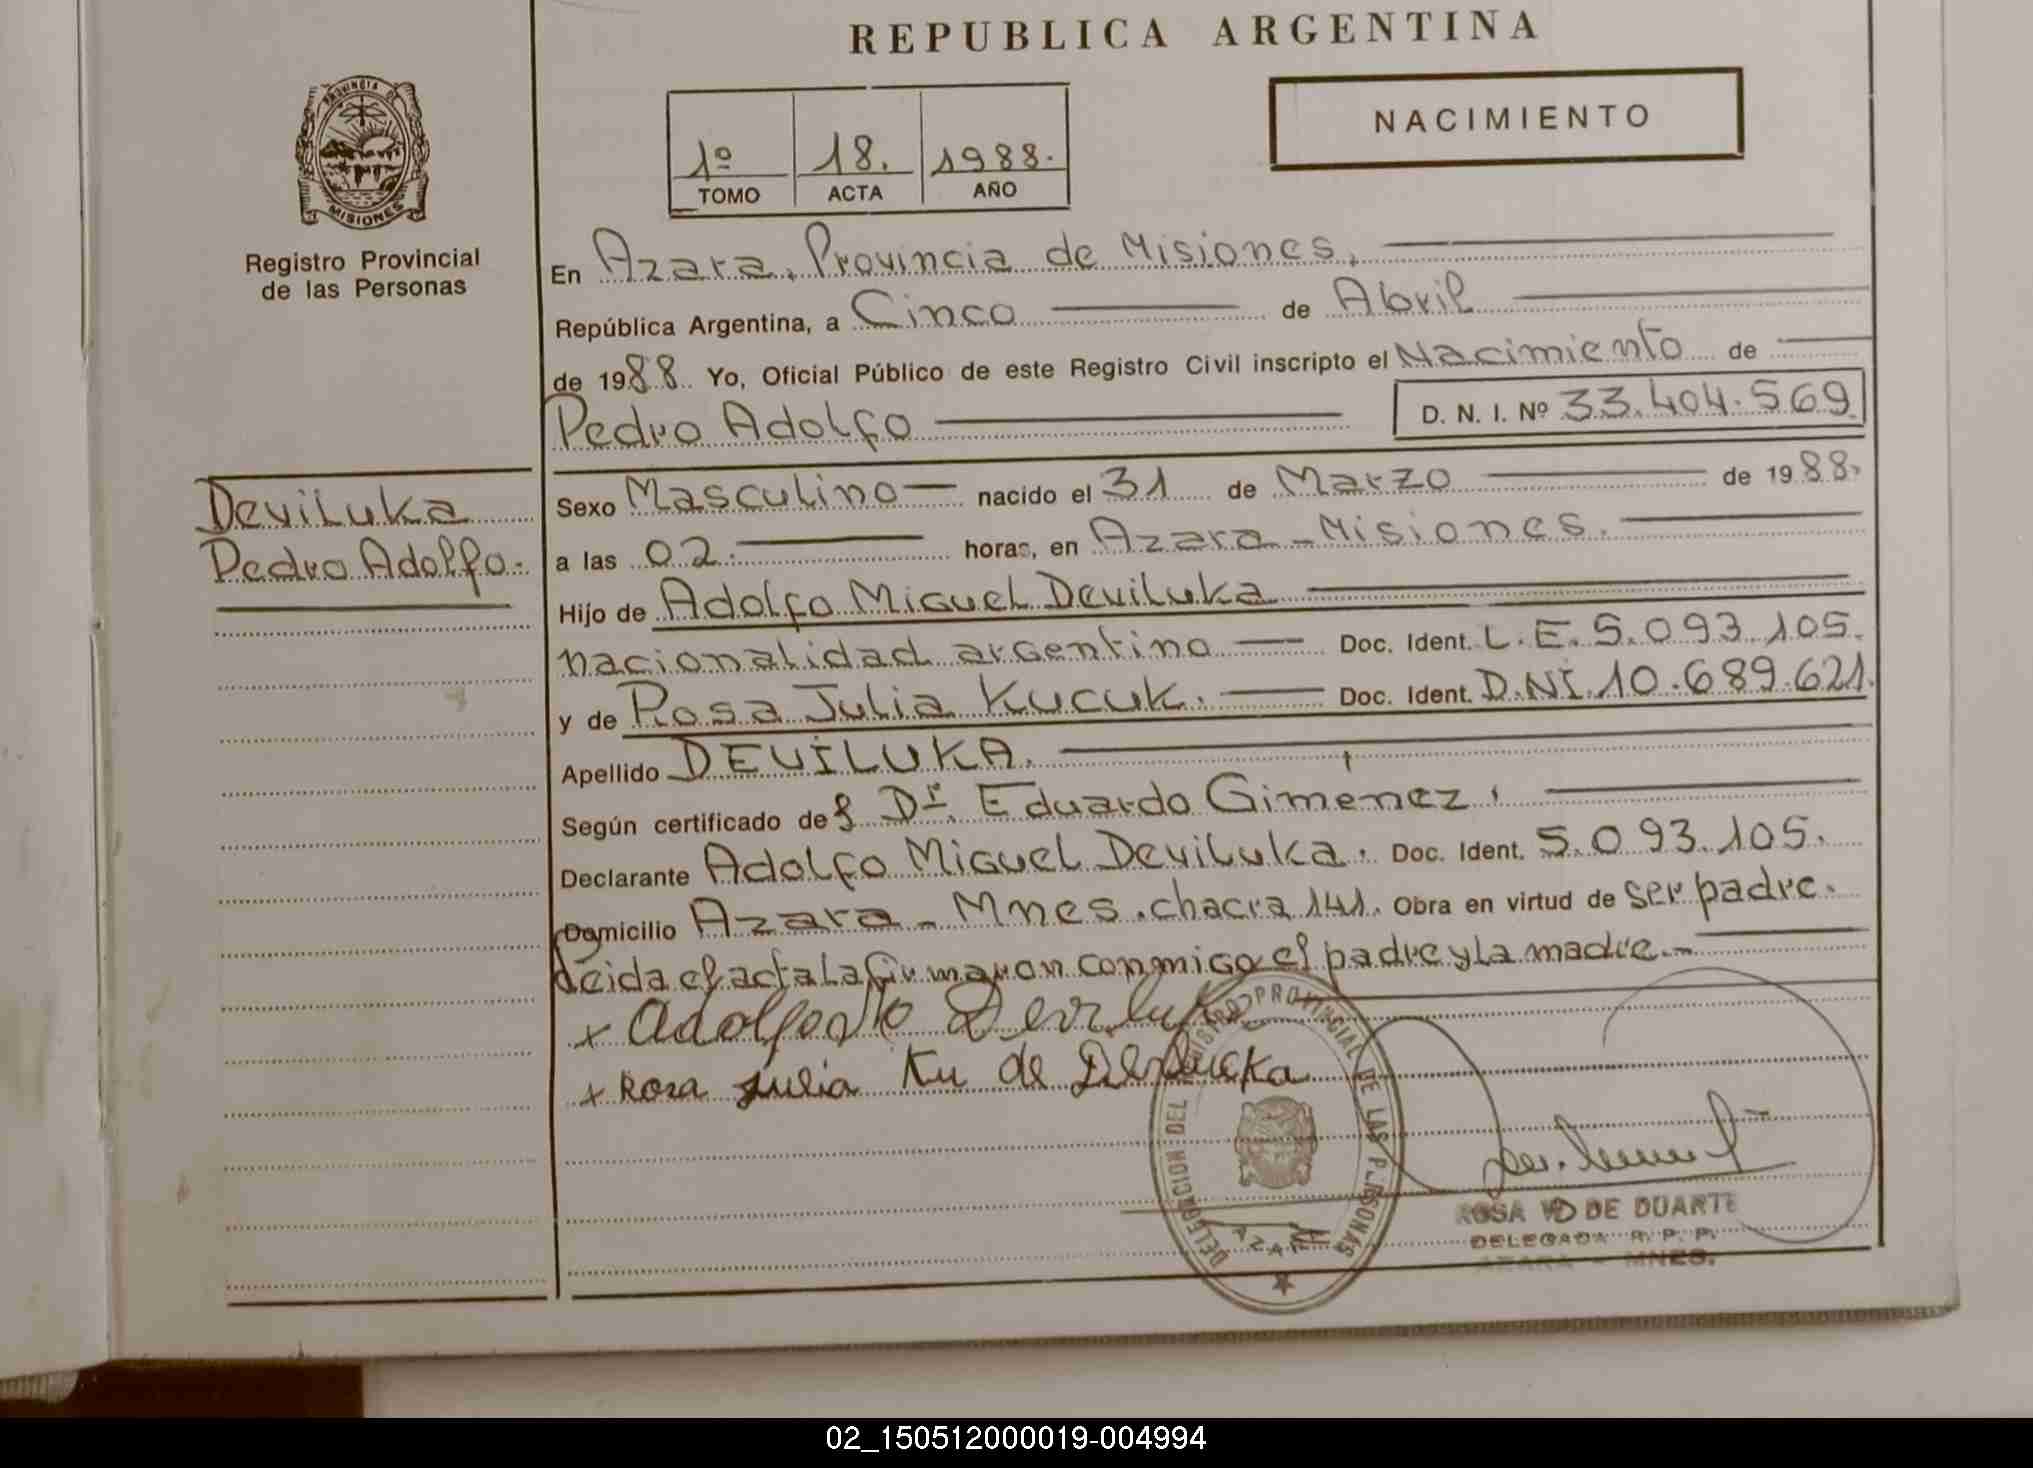 REPUBLICA ARGENTINA
PROVINCIA DE
MISIONES
Registro Provincial
de las Personas
1º 18. 1988.
TOMO ACTA AÑO
NACIMIENTO
En Azara, Provincia de Misiones,
República Argentina, a Cinco de Abril
de 1988. Yo, Oficial Público de este Registro Civil inscripto el Nacimiento de
Pedro Adolfo D. N. I. Nº 33.404.569
Deviluka
Pedro Adolfo.
Sexo Masculino nacido el 31 de Marzo de 1988.
a las 02. horas, en Azara - Misiones.
Hijo de Adolfo Miguel Deviluka
nacionalidad argentino Doc. Ident. L.E. 5.093.105.
y de Rosa Julia Kucuk. Doc. Ident. D.N.I. 10.689.621.
Apellido DEVILUKA.
Según certificado del Dr. Eduardo Gimenez.
Declarante Adolfo Miguel Deviluka. Doc. Ident. 5.093.105.
Domicilio Azara - Mnes. chacra 141. Obra en virtud de ser padre.
Leida el acta la firmaron conmigo el padre y la madre.-
x Adolfo
x Rosa Julia Ku de
DELEGACION DEL REGISTRO PROVINCIAL DE LAS PERSONAS
AZARA
ROSA VD DE DUARTE
DELEGADA R. P. P.
AZARA - MNES.
02_150512000019-004994